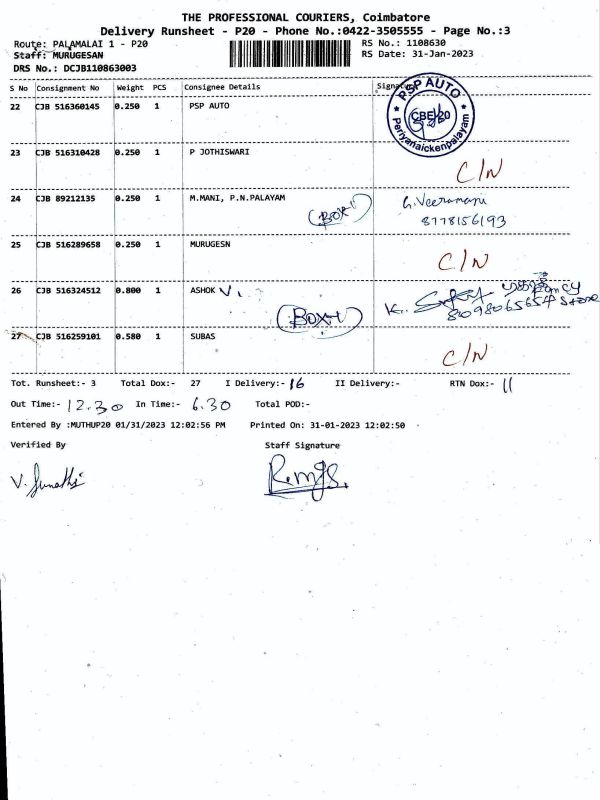 THE PROFESSIONAL COURIERS, Coimbatore
Delivery Runsheet - P20 - Phone No.:0422-3505555 - Page No.:3
Route: PALAMALAI 1 - P20 RS No.: 1108630
Staff: MURUGESAN RS Date: 31-Jan-2023
DRS No.: DCJB110863003
S No Consignment No Weight PCS Consignee Details Signature
22 CJB 516360145 0.250 1 PSP AUTO
PSP AUTO
CBE/20
Periyanaickenpalayam
23 CJB 516310428 0.250 1 P JOTHISWARI C/N
24 CJB 89212135 0.250 1 M.MANI, P.N.PALAYAM G.Veeramani
(BOX) 8778156193
25 CJB 516289658 0.250 1 MURUGESN C/N
26 CJB 516324512 0.800 1 ASHOK V. K.
(BOX) 8098065654 Store
27 CJB 516259101 0.580 1 SUBAS C/N
Tot. Runsheet:- 3 Total Dox:- 27 I Delivery:- 16 II Delivery:- RTN Dox:- 11
Out Time:- 12.30 In Time:- 6.30 Total POD:-
Entered By :MUTHUP20 01/31/2023 12:02:56 PM Printed On: 31-01-2023 12:02:50
Verified By Staff Signature
V.